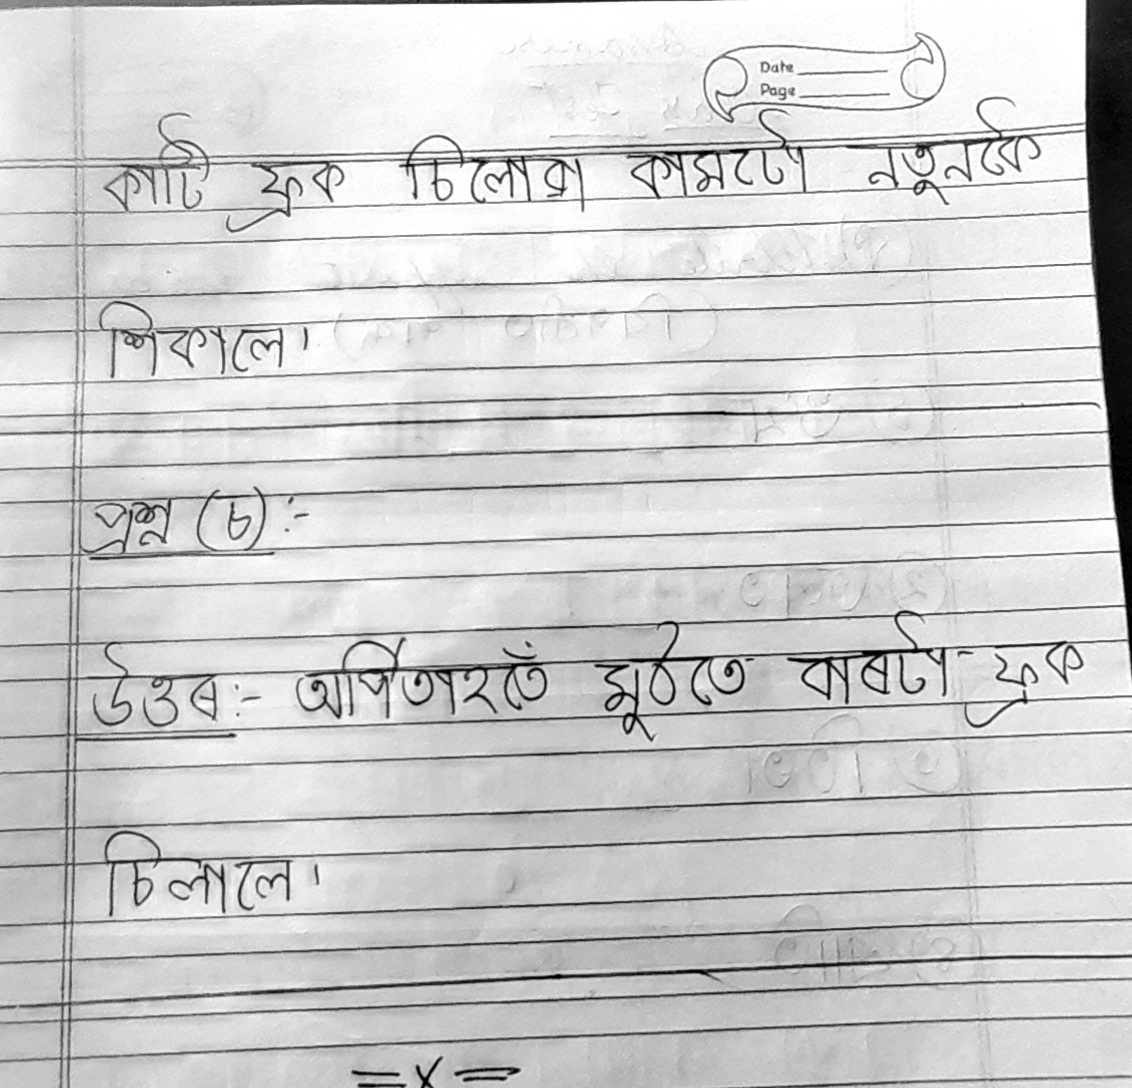 Date
Page
কাটি ফ্ৰক চিলোৱা কামটো নতুনকৈ
শিকালে।
প্ৰশ্ন (চ) :-
উত্তৰ :- অৰ্পিতাহতঁে মুঠতে বাৰটা ফ্ৰক
চিলালে।
=x=